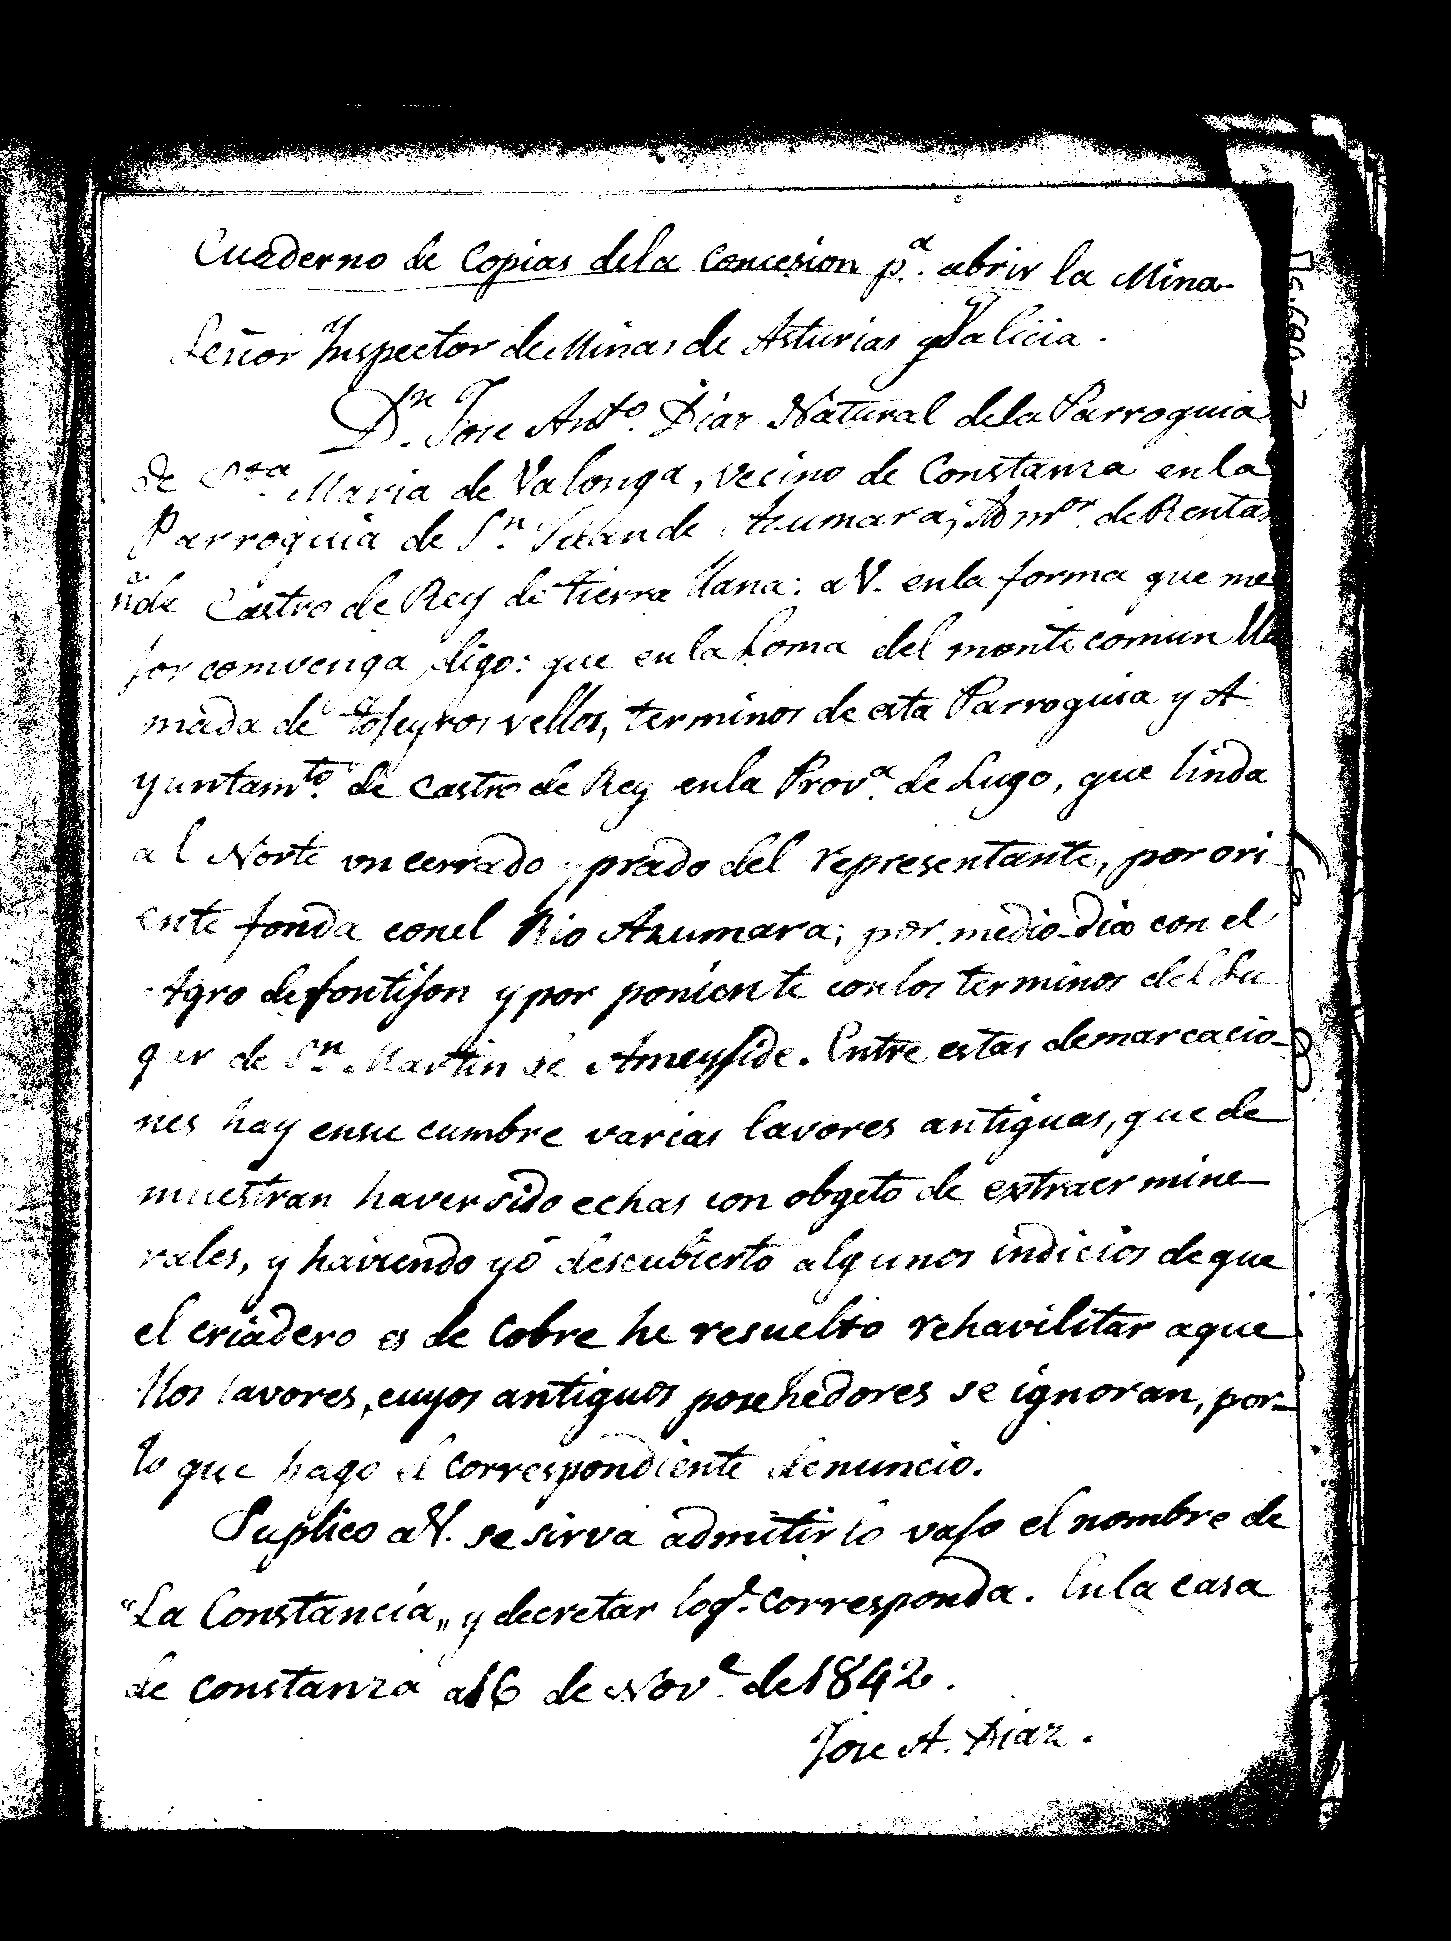 Cuaderno de Copias dela Concesion p.a abrir la Mina
Señor Inspector de Minas de Asturias y Galicia.
D.n Jose Ant.o Diaz Natural dela Parroquia
de S.ta Maria de Valonga, vecino de Constanza en la
Parroquia de S.n Julian de Azumara, Adm.or de Rentas
de Castro de Rey de tierra llana: a V. enla forma que me
jor comvenga digo: que en la Loma del monte comun lla
mada de Tojeyros vellos, terminos de esta Parroquia y A
yuntam.to de Castro de Rey enla Prov.a de Lugo, que linda
al Norte on cerrado y prado del representante, por ori
ente fonda conel Rio Azumara; por medio-dia con el
Agro de fontijon y por poniente conlos terminos del Lu
gar de S.n Martin de Ameyjide. Entre estas demarcacio-
nes hay ensu cumbre varias lavores antiguas, que de
muestran haver sido echas con obgeto de extraer mine
rales, y haviendo yó descubierto algunos indicios de que
el criadero es de Cobre he resuelto rehavilitar aque
llos lavores, cuyos antiguos posehedores se ignoran, por-
lo que hago el correspondiente denuncio.
Suplico a V. se sirva admitirlo vajo el nombre de
"La Constancia" y decretar loq.e corresponda. En la casa
de Constanza a 16 de Nov.e de 1842.
Jose A. Diaz.